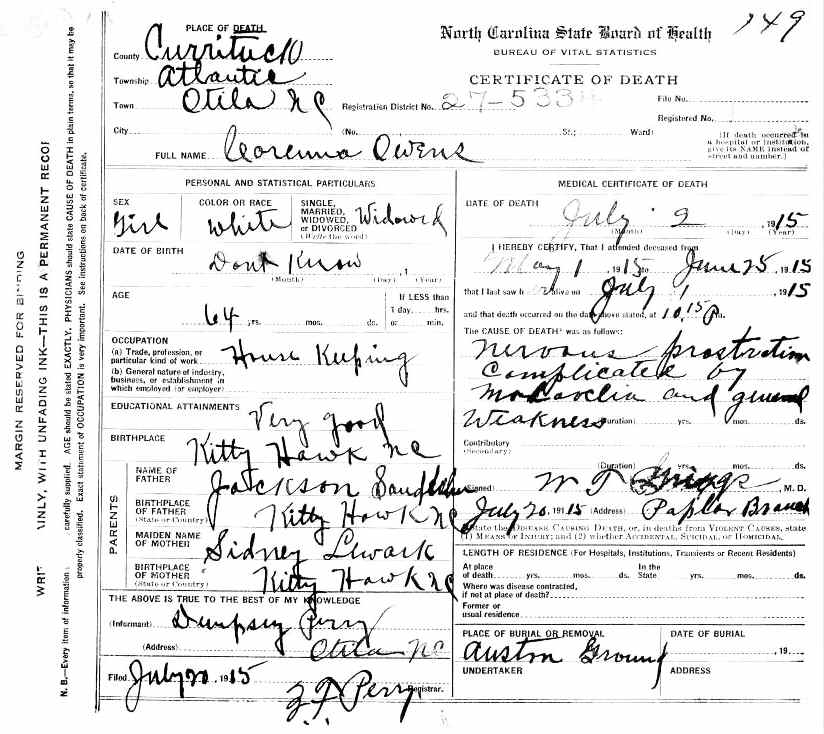 149
PLACE OF DEATH
County Currituck
Township Atlantic
Town Otila NC
City
North Carolina State Board of Health
BUREAU OF VITAL STATISTICS
CERTIFICATE OF DEATH
Registration District No. 27-533
File No.
Registered No.
(No. St.; Ward)
(If death occurred in
a hospital or institution,
give its NAME instead of
street and number.)
FULL NAME Owens
PERSONAL AND STATISTICAL PARTICULARS
SEX
Girl
COLOR OR RACE
White
SINGLE,
MARRIED,
WIDOWED,
or DIVORCED
(Write the word)
Widowed
DATE OF BIRTH
Dont Know
(Month) (Day) , 1 (Year)
AGE
64 yrs. mos. ds.
If LESS than
1 day, hrs.
or min.
OCCUPATION
(a) Trade, profession, or
particular kind of work House Keeping
(b) General nature of industry,
business, or establishment in
which employed (or employer)
EDUCATIONAL ATTAINMENTS Very good
BIRTHPLACE Kitty Hawk NC
PARENTS
NAME OF
FATHER Jackson
BIRTHPLACE
OF FATHER
(State or Country) Kitty Hawk NC
MAIDEN NAME
OF MOTHER Sidney Lewark
BIRTHPLACE
OF MOTHER
(State or Country) Kitty Hawk NC
THE ABOVE IS TRUE TO THE BEST OF MY KNOWLEDGE
(Informant) Dempsey Perry
(Address) Otila NC
Filed July 20 1915
Z T Perry Registrar.
MEDICAL CERTIFICATE OF DEATH
DATE OF DEATH
July 2, 1915
(Month) (Day) (Year)
I HEREBY CERTIFY, That I attended deceased from
May 1, 1915 to June 25, 1915
that I last saw her alive on July 1, 1915
and that death occurred on the date above stated, at 10,15 P m.
The CAUSE OF DEATH* was as follows:
nervous prostration
complicated by
and general
Weakness (Duration) yrs. mos. ds.
Contributory
(Secondary)
(Duration) yrs. mos. ds.
(Signed) W T Griggs, M. D.
July 20, 1915 (Address) Paplor Branch
*State the DISEASE CAUSING DEATH, or, in deaths from VIOLENT CAUSES, state
(1) MEANS OF INJURY; and (2) whether ACCIDENTAL, SUICIDAL, or HOMICIDAL.
LENGTH OF RESIDENCE (For Hospitals, Institutions, Transients or Recent Residents)
At place
of death yrs. mos. ds.
In the
State yrs. mos. ds.
Where was disease contracted,
if not at place of death?
Former or
usual residence
PLACE OF BURIAL OR REMOVAL
Auston Ground
DATE OF BURIAL
, 19
UNDERTAKER
ADDRESS
MARGIN RESERVED FOR BINDING
INLY, WITH UNFADING INK—THIS IS A PERMANENT RECOR
N. B.—Every item of information carefully supplied. AGE should be stated EXACTLY. PHYSICIANS should state CAUSE OF DEATH in plain terms, so that it may be
properly classified. Exact statement of OCCUPATION is very important. See instructions on back of certificate.